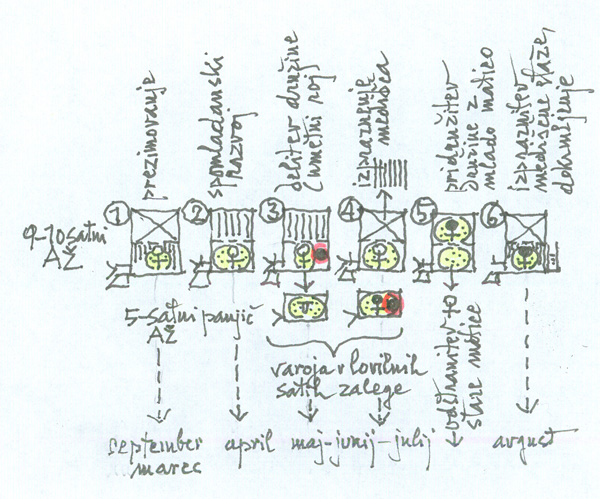 prezimovanje
spomladanski
razvoj
delitev družine
(umetni roj)
izpraznenje
medišča
pridružitev
družine z
mlado matico
izpraznitev
mediščne etaže,
dokrmljenje
1
2
3
4
5
6
9-10 satni
AŽ
5-satni panjič
AŽ
varoja v lovilnih
satih zalege
odstranitev
stare matice
september
marec
april
maj-junij-julij
avgust